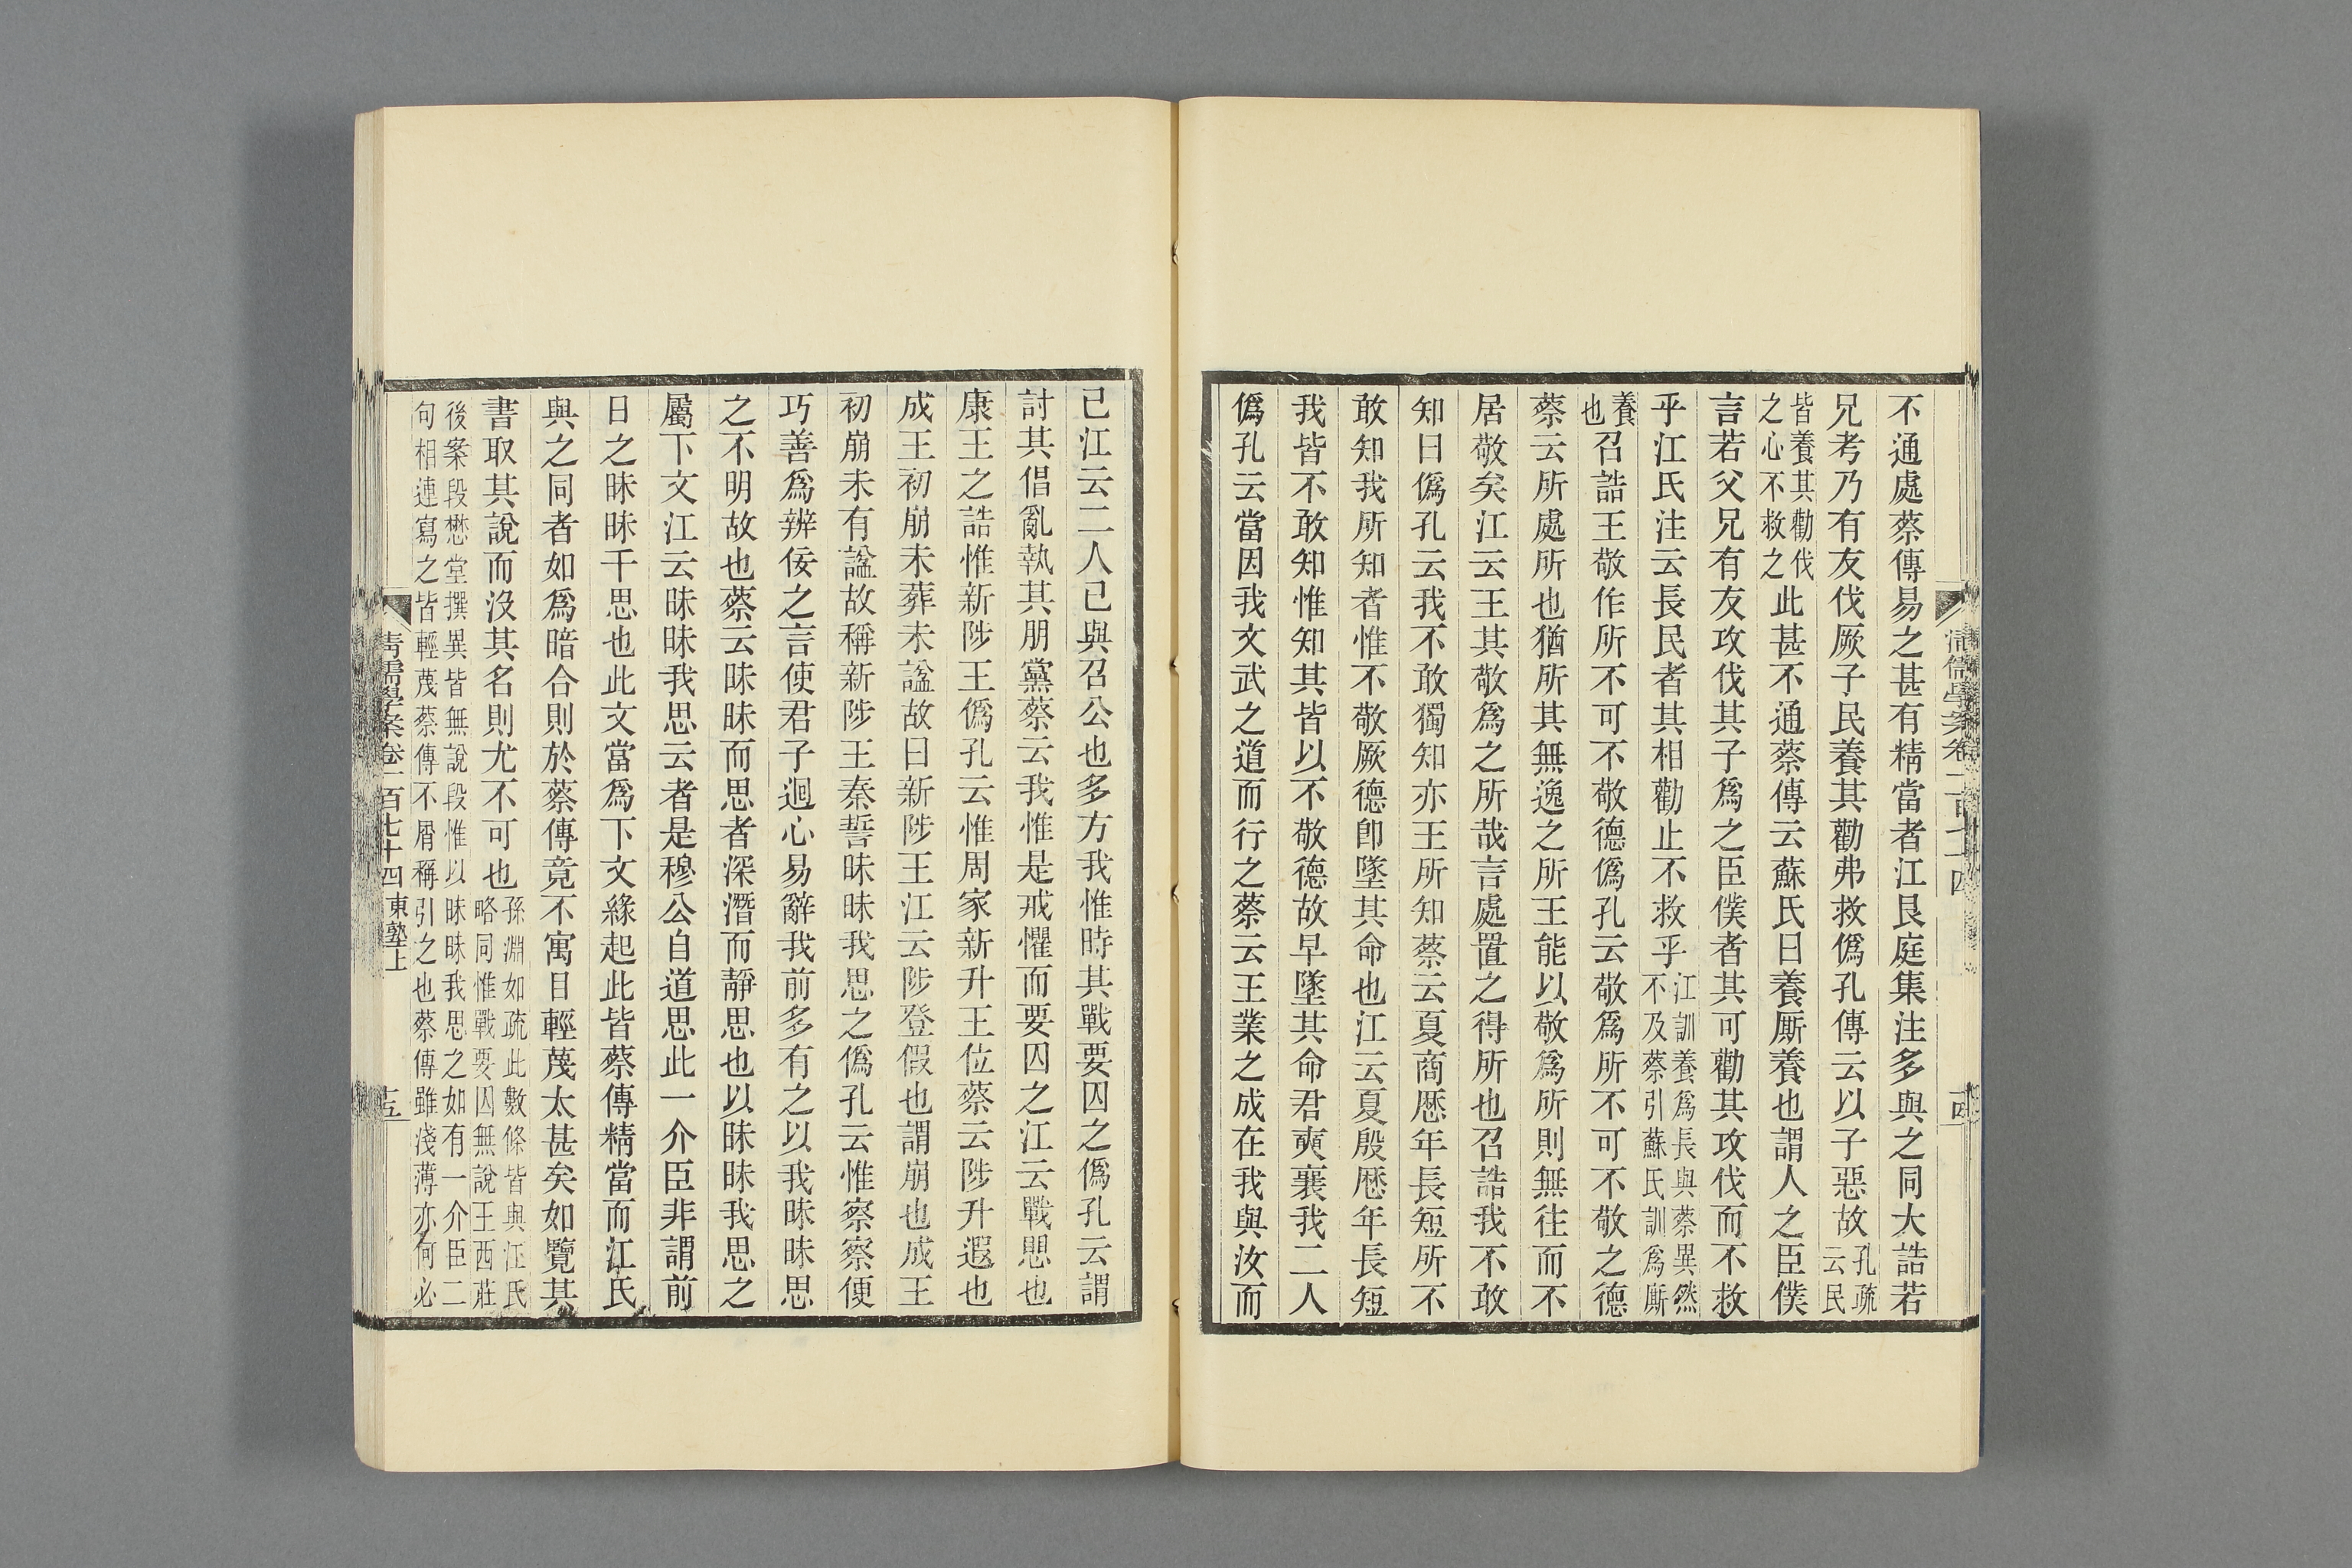 不通處蔡傳易之甚有精當者江艮庭集注多與之同大誥若
兄考乃有友伐厥子民養其勸弗救僞孔傳云以子惡故孔疏云民
皆養其勸伐之心不救之此甚不通蔡傳云蘇氏曰養厮養也謂人之臣僕
言若父兄有友攻伐其子爲之臣僕者其可勸其攻伐而不救
乎江氏注云長民者其相勸止不救乎江訓養爲長與蔡異然不及蔡引蘇氏訓爲厮
養也召誥王敬作所不可不敬德僞孔云敬爲所不可不敬之德
蔡云所處所也猶所其無逸之所王能以敬爲所則無往而不
居敬矣江云王其敬爲之所哉言處置之得所也召誥我不敢
知曰僞孔云我不敢獨知亦王所知蔡云夏商歷年長短所不
敢知我所知者惟不敬厥德卽墜其命也江云夏殷歷年長短
我皆不敢知惟知其皆以不敬德故早墜其命君奭襄我二人
僞孔云當因我文武之道而行之蔡云王業之成在我與汝而
清儒學案卷一百七十四
十四
已江云二人已與召公也多方我惟時其戰要囚之僞孔云謂
討其倡亂執其朋黨蔡云我惟是戒懼而要囚之江云戰思也
康王之誥惟新陟王僞孔云惟周家新升王位蔡云陟升遐也
成王初崩未葬未諡故曰新陟王江云陟登假也謂崩也成王
初崩未有諡故稱新陟王秦誓昧昧我思之僞孔云惟察察便
巧善爲辨佞之言使君子迴心易辭我前多有之以我昧昧思
之不明故也蔡云昧昧而思者深潛而靜思也以昧昧我思之
屬下文江云昧昧我思云者是穆公自道思此一介臣非謂前
日之昧昧千思也此文當爲下文緣起此皆蔡傳精當而江氏
與之同者如爲暗合則於蔡傳竟不寓目輕蔑太甚矣如覽其
書取其說而沒其名則尤不可也孫淵如疏此數條皆與江氏略同惟戰要囚無說王西莊
後案段懋堂撰異皆無說段惟以昧昧我思之如有一介臣二句相連寫之皆輕蔑蔡傳不屑稱引之也蔡傳雖淺薄亦何必
清儒學案卷一百七十四 東塾上
十五